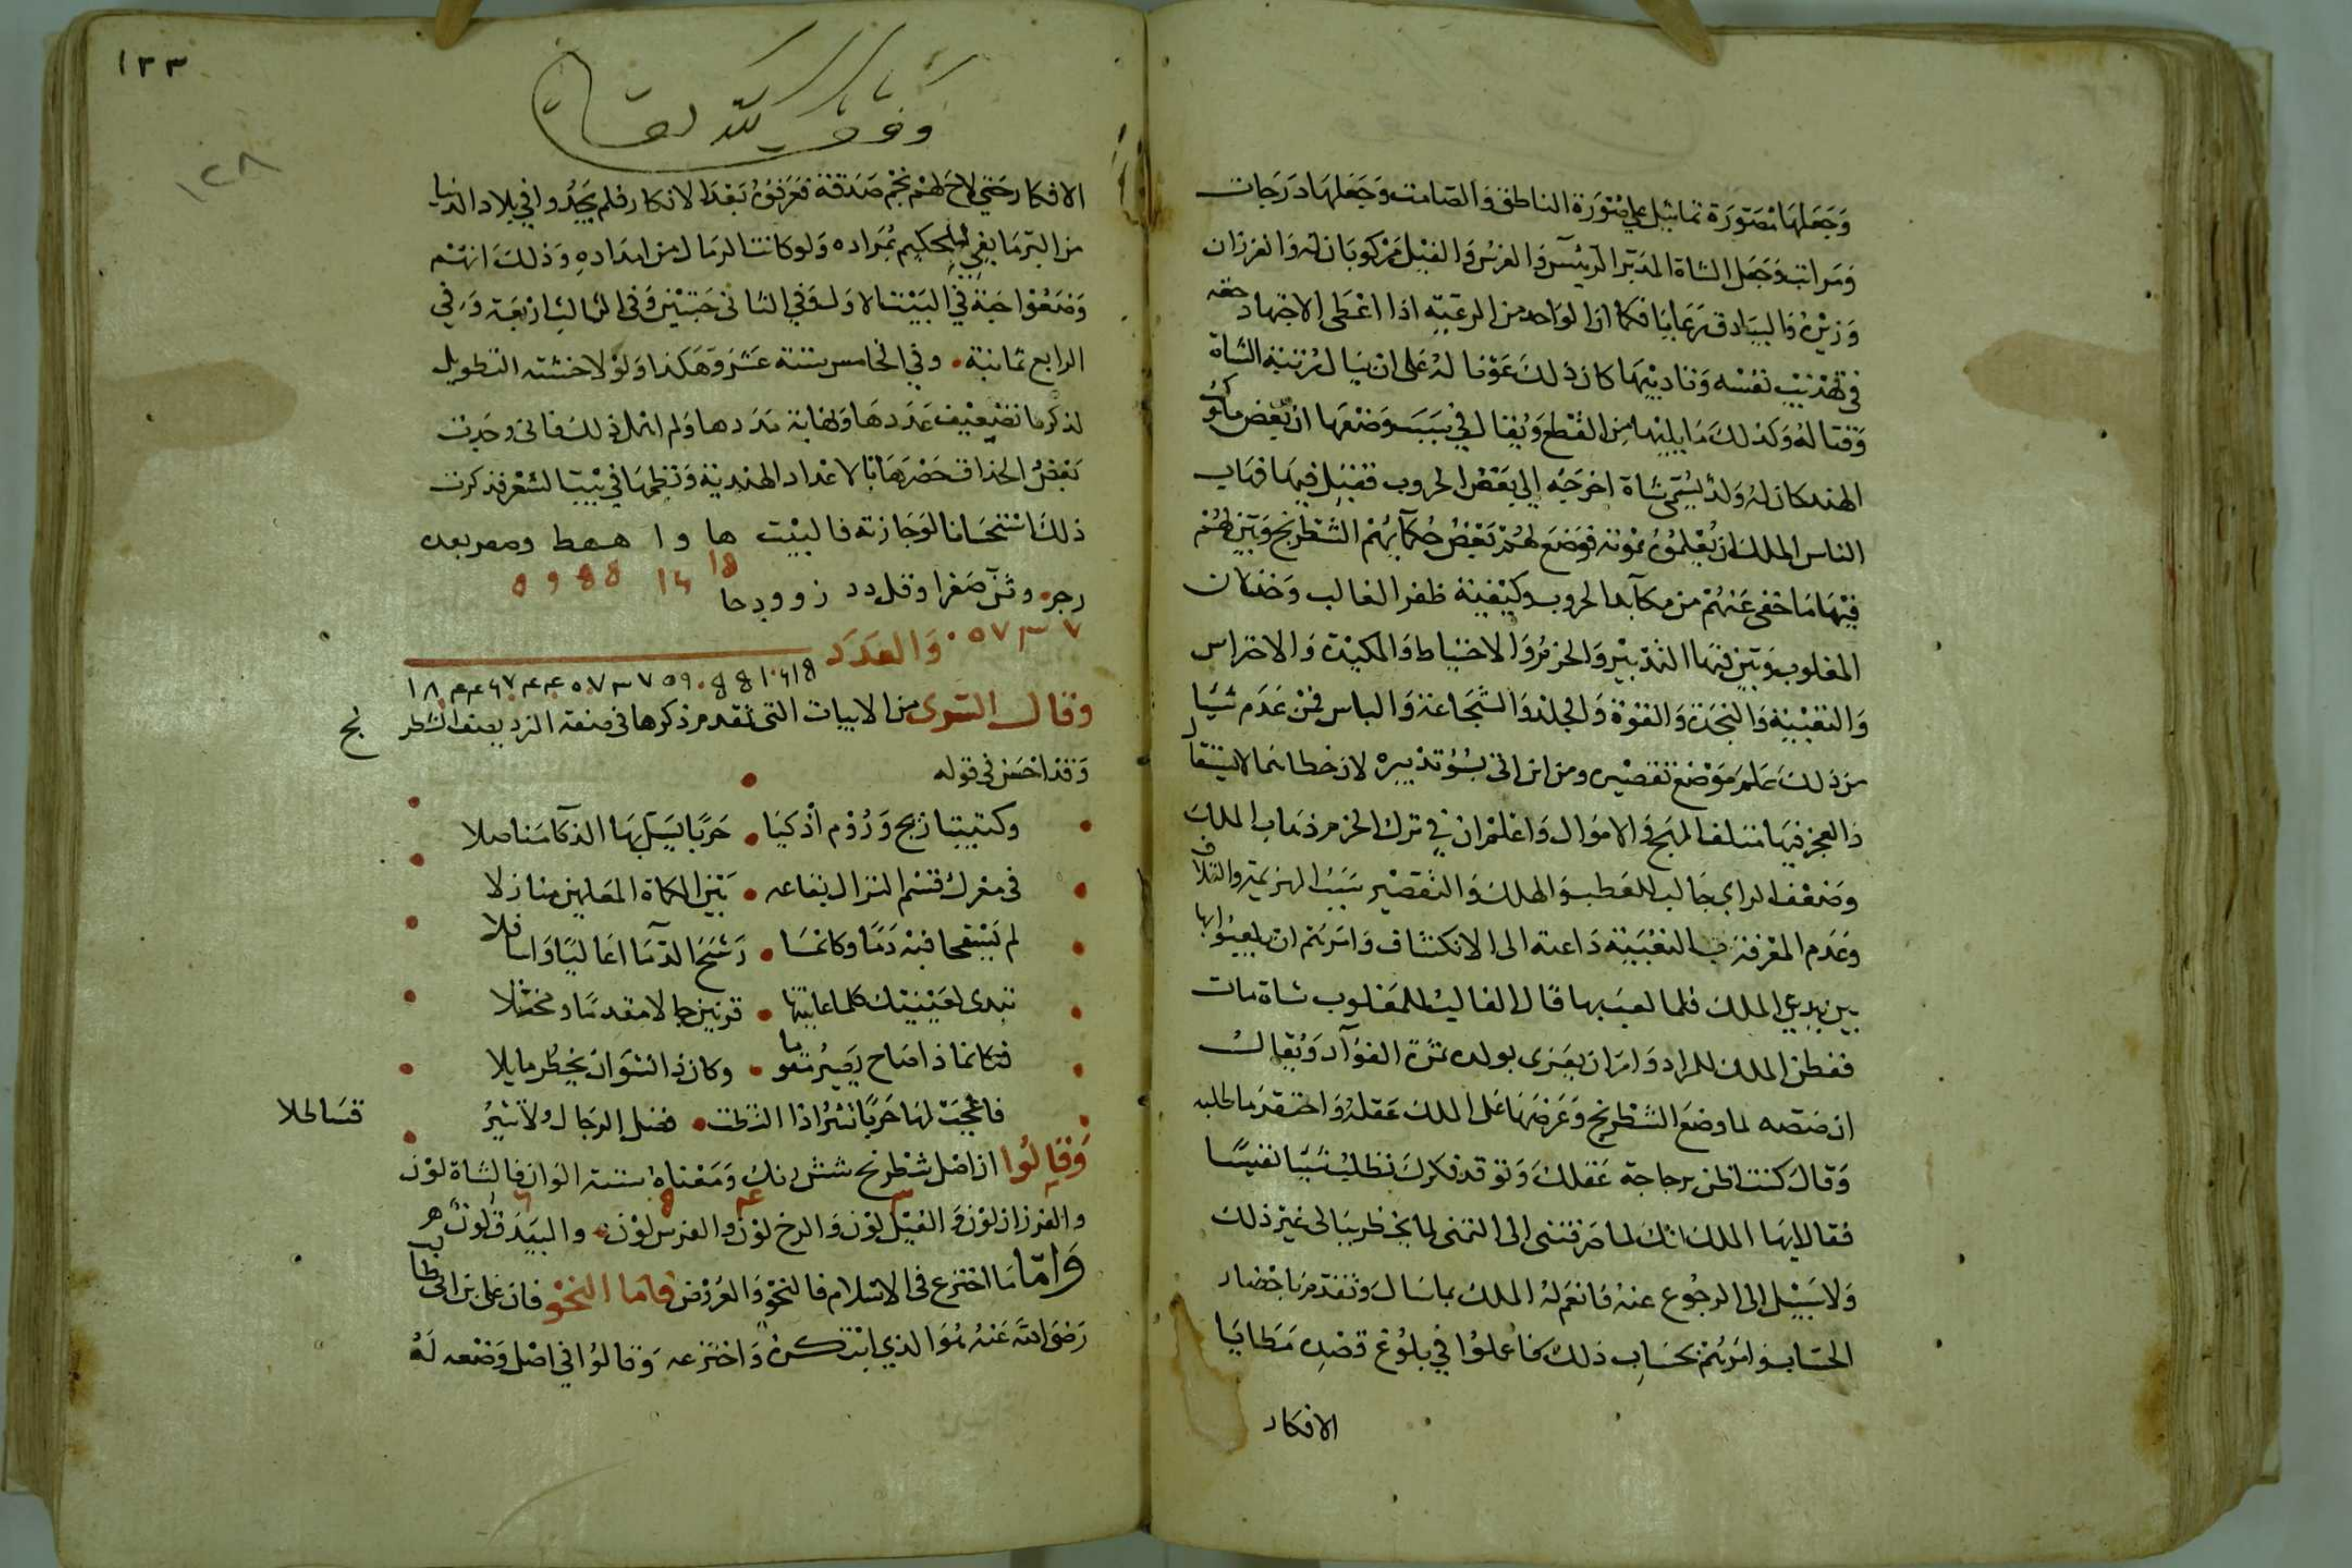 وجعلها مصورة تماثيل على صورة الناطق والصامت وجعلها درجات
ومراتب وجعل الشاة المدبر الرئيس والفرس والفيل مركوبان له والفرزان
وزيره والبيادق رعايا فكما ان الواحد من الرعية اذا اعطى الاجتهاد حقه
في تهذيب نفسه وتاديبها كان ذلك عونا له على ان ينال مرتبة الشاة
وقتاله وكذلك ما يليها من القطع ويقال في سبب وضعها ان بعض ملوك
الهند كان له ولد يسمى شاة اخرجه الى بعض الحروب فقتل فيها فهاب
الناس الملك ان يعلموه بموته فوضع لهم بعض حكمآيهم الشطرنج وبين لهم
فيها ما خفى عنهم من مكآيد الحروب وكيفية ظفر الغالب وخذلان
المغلوب وبين فيها التدبير والحزم والاحتياط والمكيدة والاحتراس
والتعبية والنجدة والقوة والجلد والشجاعة والباس فمن عدم شيا
من ذلك علم موضع تقصيره ومن اين اتى بسوء تدبيره لان خطاءها لا يستقال
ذا العجز فيها متلف المهج والاموال واعلم ان في ترك الحزم ذهاب الملك
وضعف الراي جالب للعطب والهلك والتقصير سبب الهزيمة والتلاف
وعدم المعرفة بالتعبية داعية الى الانكشاف وامرهم ان يلعبوا بها
بين يدي الملك فلما لعب بها قال الغالب للمغلوب شاة مات
ففطن الملك للمراد وامر ان يعزى بولده ثمرة الفوآد ويقال
ان صصه لما وضع الشطرنج وعرضها على الملك عقله واحتقر ما طلبه
وقال كنت اظن برجاجة عقلك وتوقد فكرك تطلب شيا نفيسا
فقال ايها الملك انك لما صرفتنى الى التمنى لما يخطر ببالى غير ذلك
ولا سبيل الى الرجوع عنه فانعم له الملك بما سال وتقدم باحضار
الحساب وامرهم بحساب ذلك فاعملوا في بلوغ قصده مطايا
الافكار
١٣٣
١٢٨
وقف لله تعالى
الافكار حتى لاح لهم نجم صدقه فعرفوه بعد الانكار فلم يجدوا في بلاد الدنيا
من البر ما يفي للحكيم بمراده ولو كانت الرمال من امداده وذلك انهم
وضعوا حبة في البيت الاول وفي الثاني حبتين وفى الثالث اربعة وفي
الرابع ثمانية وفي الخامس ستة عشر وهكذا ولولا خشية التطويل
لذكرها تضعيف عددها ونهاية مددها ولم اهمل ذلك فانى وجدت
بعض الحذاق حصرها بالاعداد الهندية ونظمها في بيت الشعر فذكرت
ذلك استحسانا لوجازته فالبيت ها وا ههط ومصربعده
زجز وثن صفرا وقل دد ز وو دحا
٧ ٣ ٧ ٥ . والعدد
وقال السرى من الابيات التى تقدم ذكرها فى صفة النرد يصف الشطرنج
وقد احسن فى قوله
وكتيبتا زنج وروم اذكيا حربا يسل بها الذكآ مناصلا
فى معرك قسم النزال بقاعه بين الكماة المعلمين منازلا
لم يسفحا فيه دما وكانما رشح الدمآ اعاليا واسافلا
تبدى لعينيك كلما عاينتها قرنين جالا مقدما ومخاتلا
فكانما ذا صاح يسير مقوما وكان ذا نشوان يخطر مايلا
فاعجب لها حربا تثير اذا التظت فضل الرجال ولا تثير قساطلا
وقالوا ان اصل شطرنج شش رنك ومعناه ستة الوان فالشاة لون
والفرزان لون والفيل لون والرخ لون والفرس لون والبيدق لون
واما ما اخترع فى الاسلام فالنحو والعروض فاما النحو فان على بن ابى طالب
رضى الله عنه هو الذي ابتكره واخترعه وقالوا في اصل وضعه له